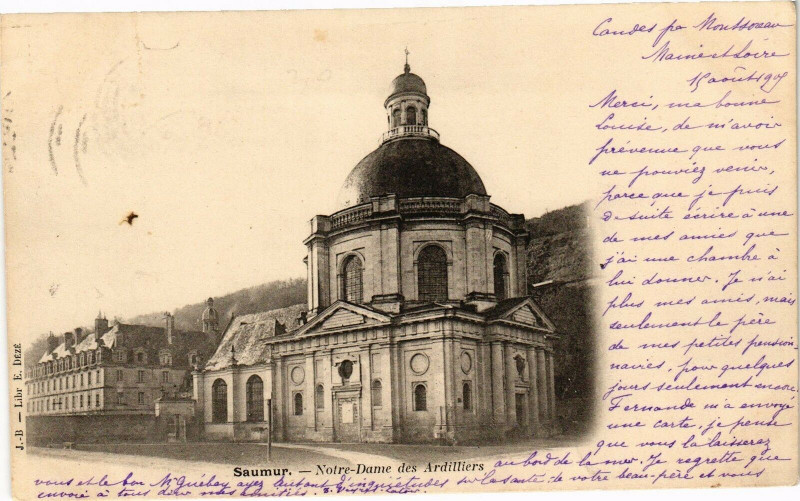 Candes par Montsoreau
Maine et Loire
15 août 190
Merci, ma bonne
Louise, de m'avoir
prévenue que vous
ne pouviez venir,
parce que je puis
de suite écrire à une
de mes amies que
j'ai une chambre à
lui donner. Je n'ai
plus mes amis, mais
seulement le père
de mes petites pension
naires, pour quelques
jours seulement encore.
Fernande m'a envoyé
une carte, je pense
que vous la laisserez
au bord de la mer. Je regrette que
vous et le bon Mr Guébay ayez autant d'inquiétudes sur la santé de votre beau-père et vous
envoie à tous deux mes amitiés.
Saumur. — Notre-Dame des Ardilliers
J.-B — Libr E. DÉZÉ